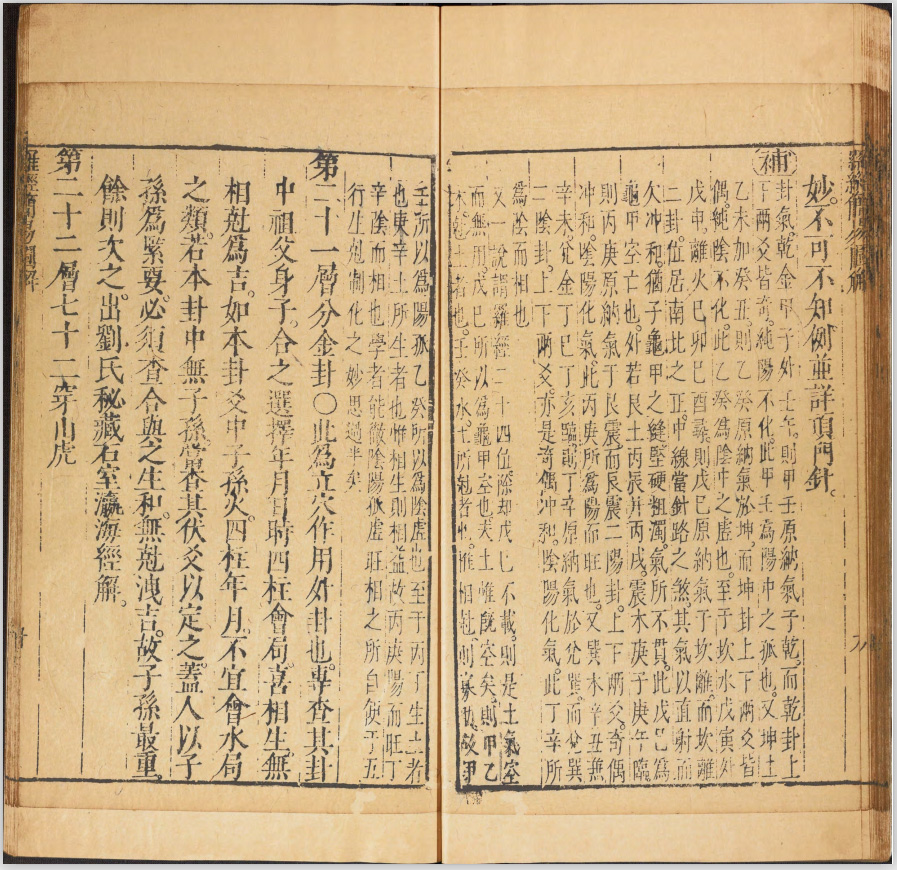 妙。不可不知例並詳項門針。
補 卦氣乾金甲子外壬午。則甲壬原納氣于乾。而乾卦上
下兩爻皆竒。純陽不化。此甲壬爲陽中之孤也。又坤土
乙未加癸丑。則乙癸原納氣於坤。而坤卦上下兩爻皆
偶。純陰不化。此乙癸爲陰中之虛也。至于坎水戊寅外
戊申。離火巳卯巳酉尋則戊巳原納氣于坎離。而坎離
二卦位居南北之正中線當針路之煞。其氣以直射而
欠冲和。猶子龜甲之縫堅硬粗濁。氣所不貫。此戊巳爲
龜甲空亡也。外若艮土丙辰并丙戌。震木庚子庚午臨
則丙庚原納氣于艮震。而艮震二陽卦。上下兩爻。竒偶
冲和。陰陽化氣。此丙庚所爲陽而旺也。又巽木辛丑兼
辛未兊金丁巳丁亥臨。則丁辛原納氣於兊巽。而兊巽
二陰卦。上下兩爻。亦是竒偶冲和。陰陽化氣。此丁辛所
爲陰而相也
又一說謂羅經二十四位除却戊巳不載。則是土氣空
而無用。戊巳所以爲龜甲空也夫土惟既空矣。則甲乙
木。尅土者也。壬癸水。土所尅者也。惟相尅則寡故甲
壬所以爲陽孤乙癸所以爲陰虛也至于丙丁生土者
也庚辛土所生者也惟相生則相益故丙庚陽而旺丁
辛陰而相也學者能徹陰陽孤虛旺相之所自便于五
行生尅制化之妙思過半矣
第二十一層分金卦〇此爲立穴作用外卦也。專查其卦
中祖父身子。合之選擇年月日時四柱會局。喜相生。無
相尅爲吉。如本卦爻中子孫火。四柱年月。不宜會水局
之類。若本卦中無子孫。當查其伏爻以定之。葢人以子
孫爲緊要。必須查合與之生和。無尅洩吉。故子孫最重。
餘則次之。出劉氏秘藏石室瀛海經解。
第二十二層七十二穿山虎
羅經簡易圖解